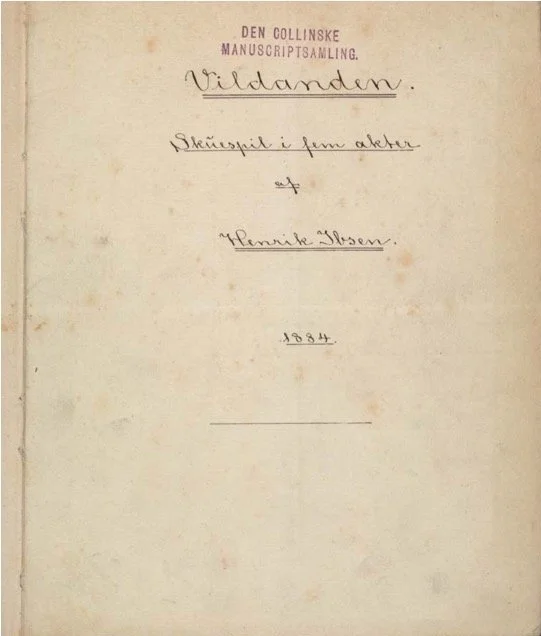 DEN COLLINSKE
MANUSCRIPTSAMLING.
Vildanden.
Skŭespil i fem akter
af
Henrik Ibsen.
1884.